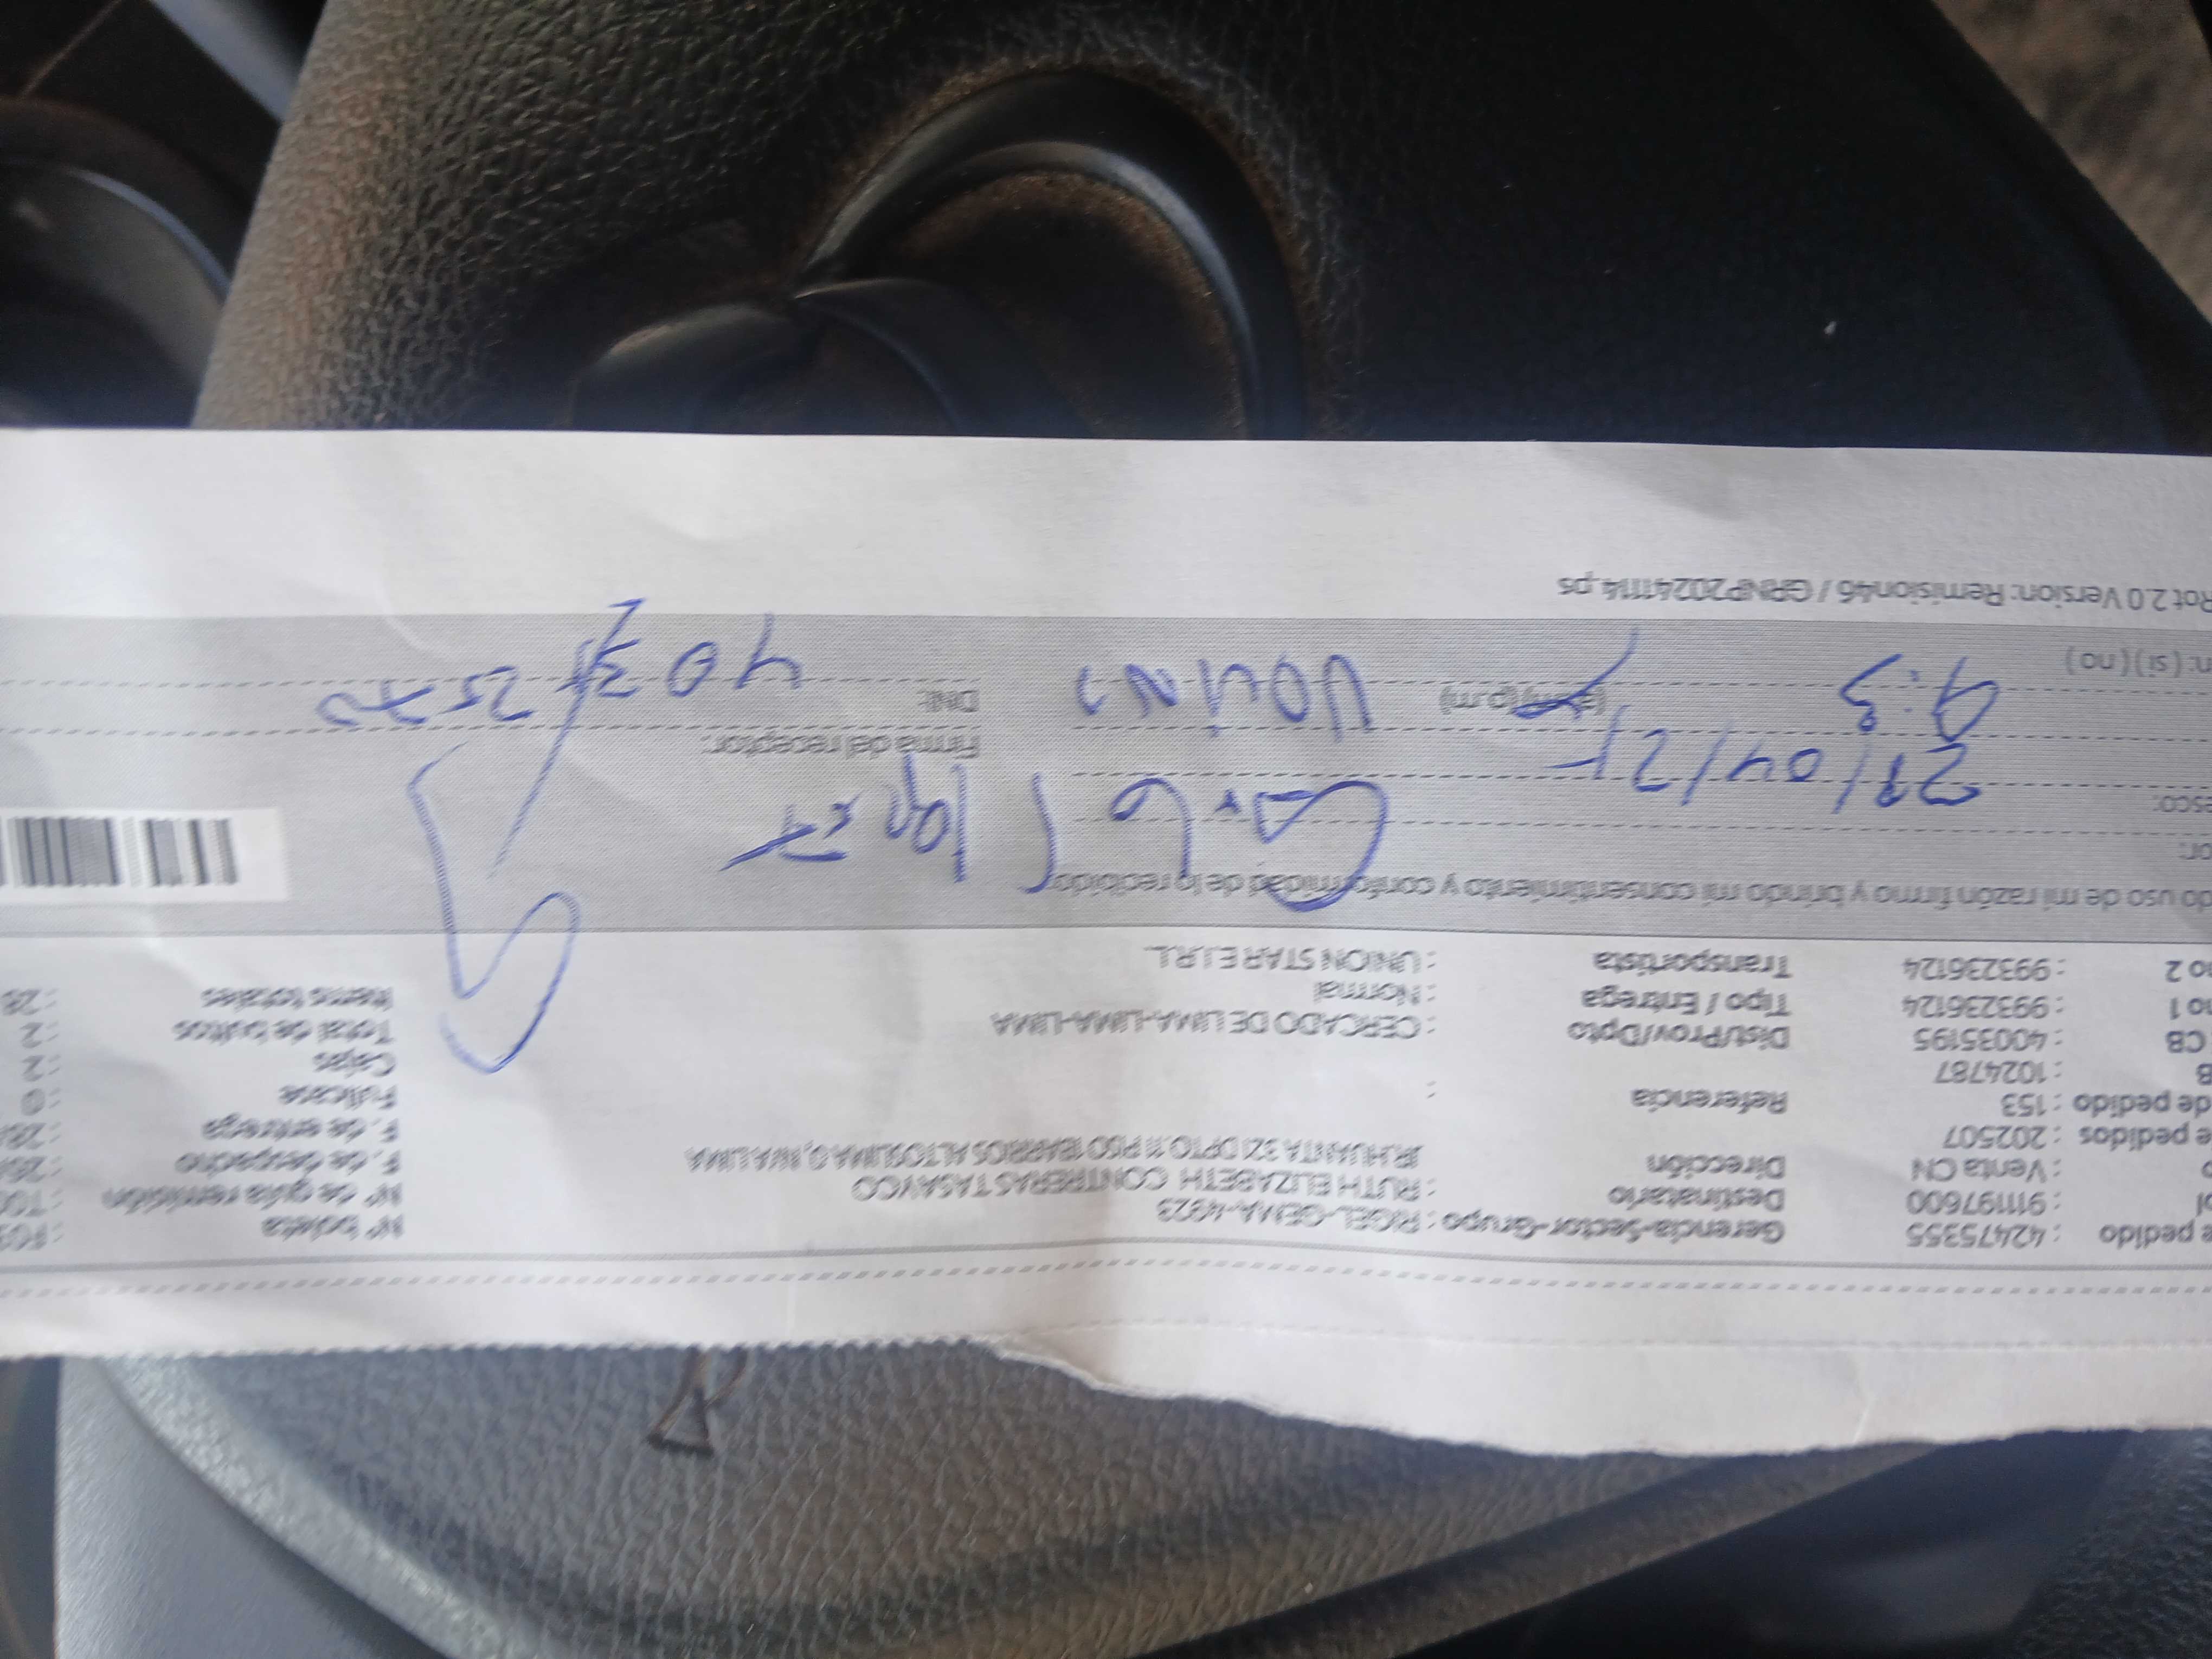 e pedido : 42475355 Gerencia-Sector-Grupo : RIGEL-GEMA-4923 N° boleta
: 911197600 Destinatario : RUTH ELIZABETH CONTRERAS TASAYCO N° de guía remisión
: Venta CN Dirección JR.HUANTA 321 DPTO.11 PISO 1BARRIOS ALTOSLIMA F. de despacho
e pedidos : 202507 F. de entrega
de pedido : 153 Referencia : Fullcase : 0
B : 1024787 Cajas : 2
CB : 40035195 Dist/Prov/Dpto : CERCADO DE LIMA-LIMA-LIMA Total de bultos : 2
no 1 : 993236124 Tipo / Entrega : Normal Items totales : 28
no 2 : 993236124 Transportista : UNION STAR E.I.R.L.
do uso de mi razón firmo y brindo mi consentimiento y conformidad de lo recibido:
or:
esco:
/04/ Firma del receptor:
9:3 (a.m)(p.m) DNI:
n: (si)(no)
Rot 2.0 Version: Remision46 / GRNP20241114.ps